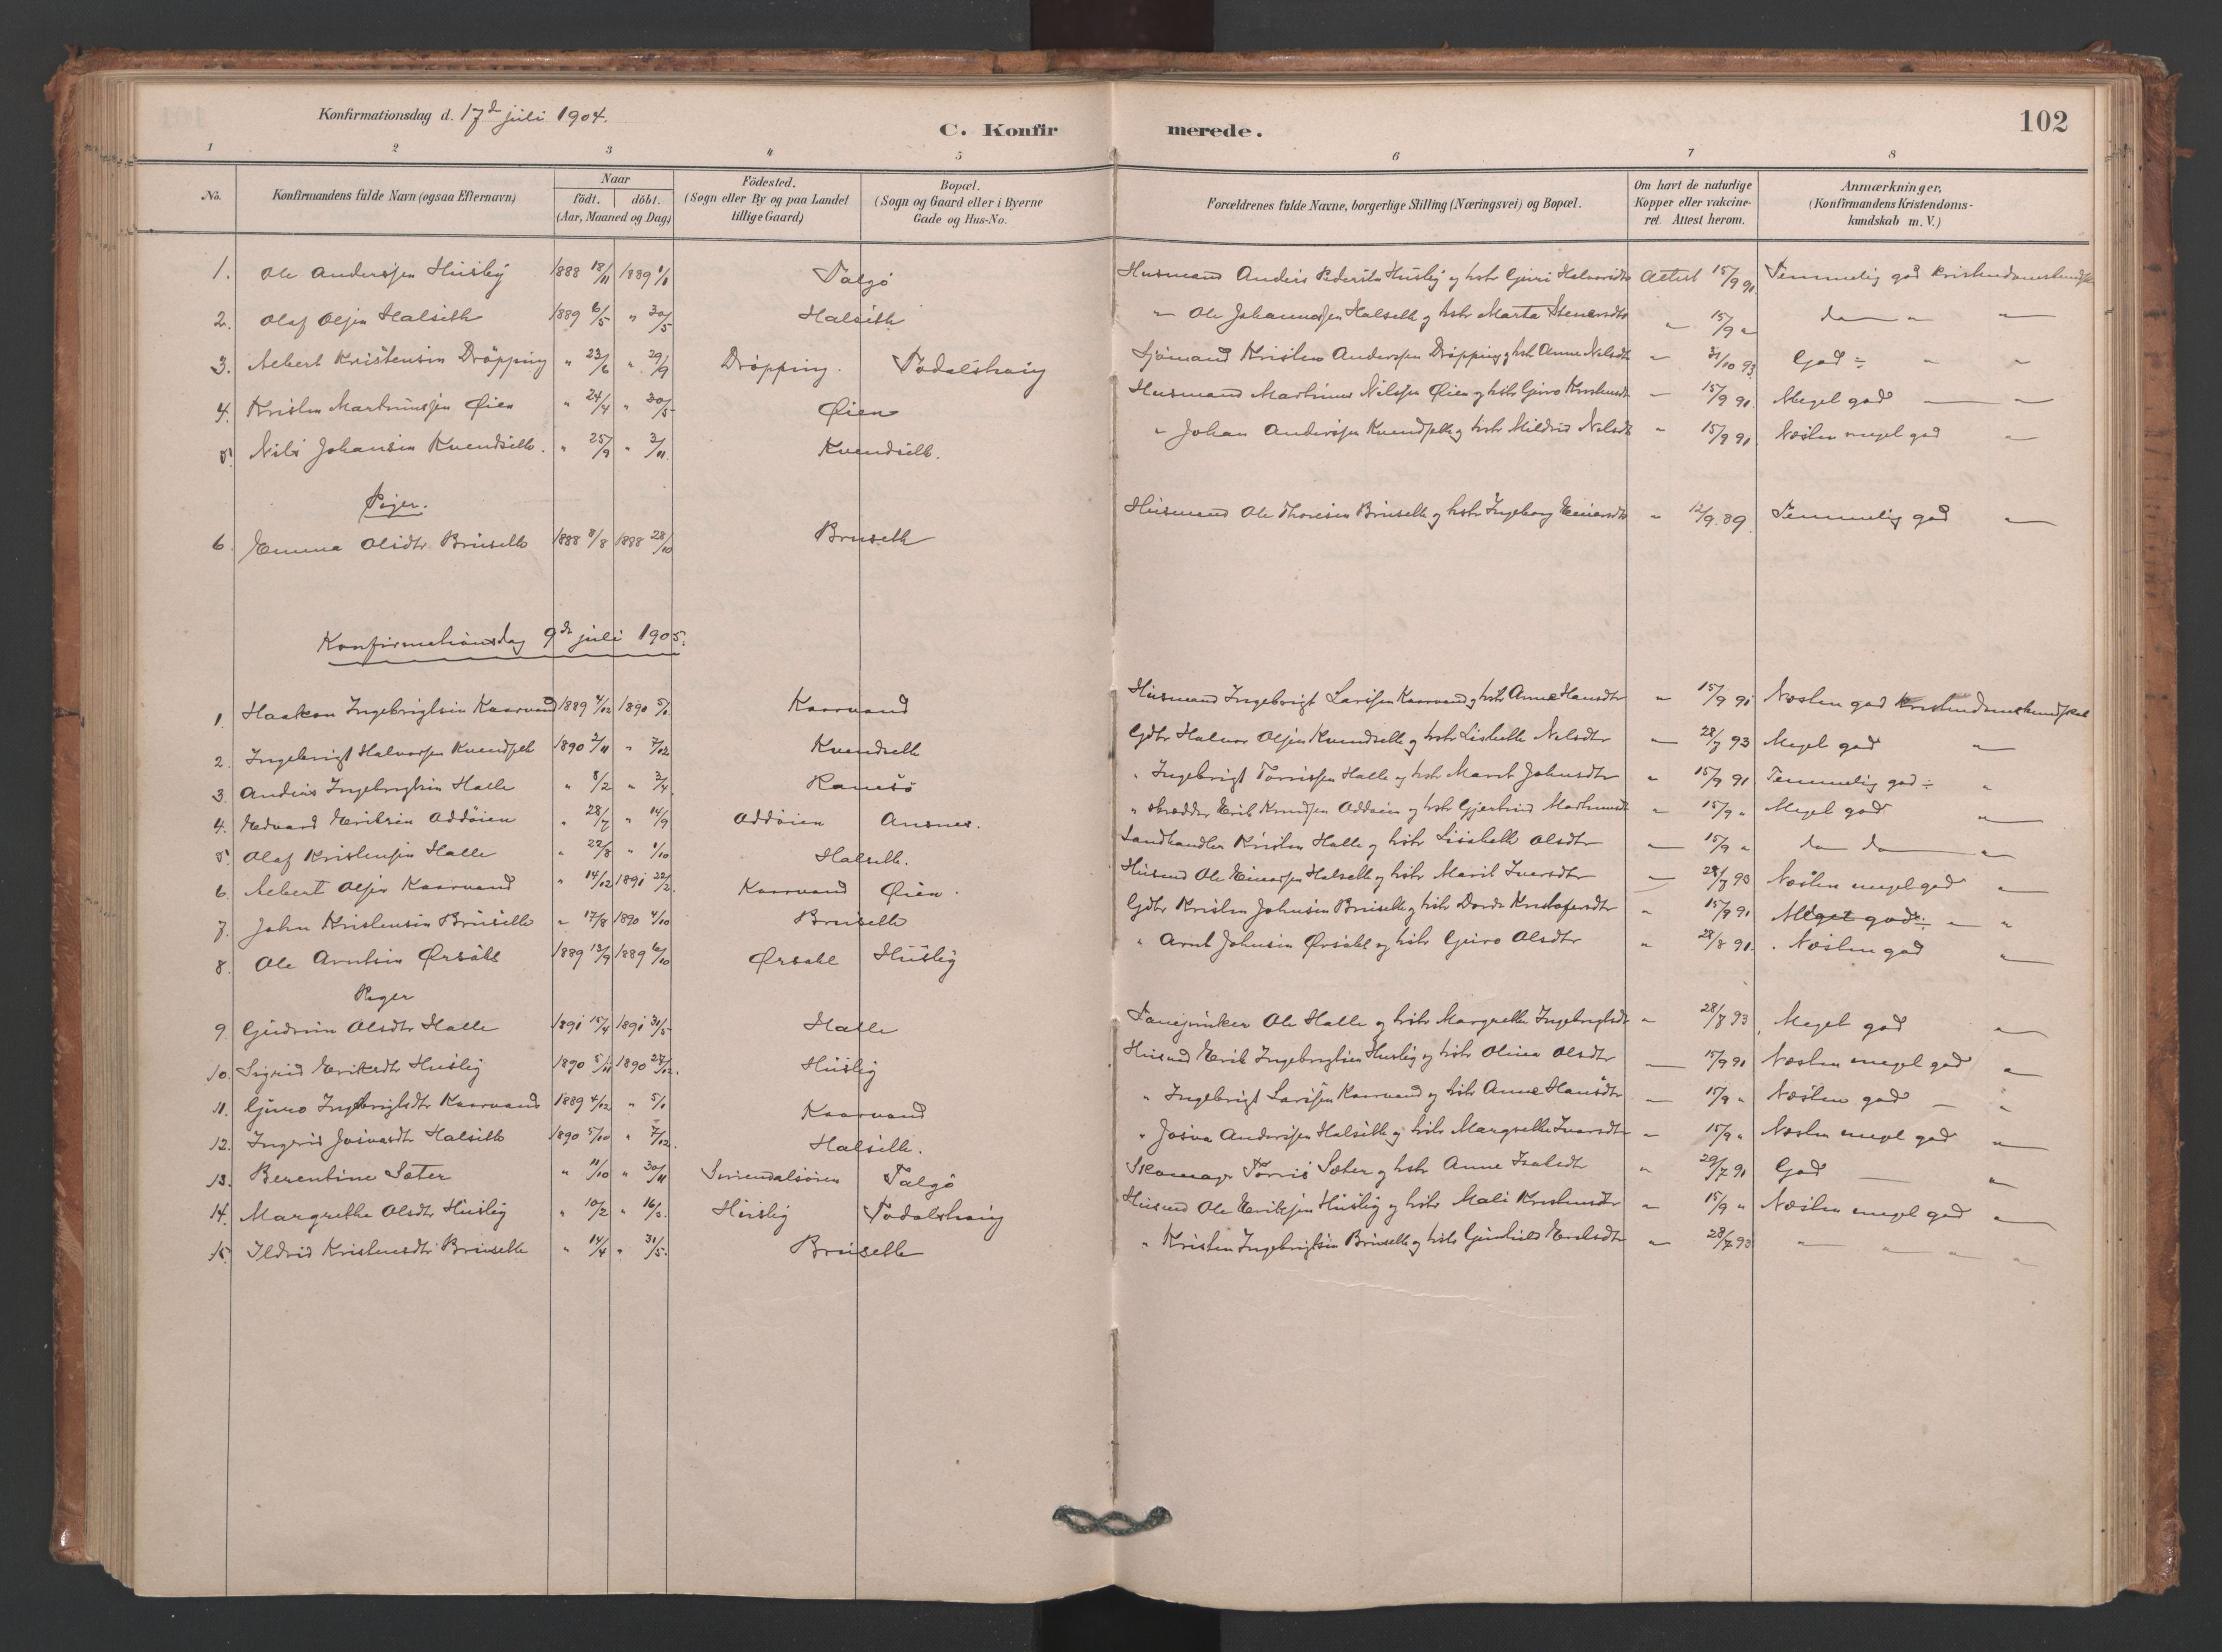 Konfirmationsdag d. 17de juli 1904.
C. Konfirmerede.
102
1 2 3 4 5 6 7 8
No. Konfirmandens fulde Navn (ogsaa Efternavn) Naar födt. döbt. (Aar, Maaned og Dag) Födested. (Sogn eller By og paa Landet tillige Gaard) Bopæl. (Sogn og Gaard eller i Byerne Gade og Hus-No. Forældrenes fulde Navne, borgerlige Stilling (Næringsvei) og Bopæl. Om havt de naturlige Kopper eller vakcineret. Attest herom. Anmærkninger, (Konfirmandens Kristendomskundskab m. V.)
1. Ole Anderssen Husby 1888 18/11 1889 1/1 Talgö Husmand Anders Pedersen Husby og hstr Guri Halvorsdtr Attest 15/9 91 Temmelig god Kristendomskundsk
2. Olaf Olsen Halseth 1889 6/5 " 30/5 Halseth " Ole Johannessen Halseth og hstr Marta Steversdtr " 15/9 " do " "
3. Albert Kristensen Dröpping " 23/6 " 29/9 Dröpping. Todalshaug Sjömand Kristen Anderssen Dröpping og hstr Anne Nelsdtr " 31/10 93 God ÷ " "
4. Kristen Martinussen Øien " 24/4 " 30/5 Øien Husmand Martinus Nilssen Øien og hstr Guro Kristensdtr " 15/9 91. Meget god " "
5. Nils Johansen Kvendseth. " 25/9 " 3/11 Kvendseth. " Johan Anderssen Kvendseth og hstr Mildrid Nelsdtr " 15/9 91 Næsten meget god "
Piger.
6. Emma Olsdtr Bruseth 1888 8/8 1888 28/10 Bruseth Husmand Ole Thoresen Bruseth og hstr Ingeborg Einarsdtr " 12/9 89. Temmelig god "
Konfirmationsdag 9de juli 1905.
1. Haakon Ingebrigtsen Kaarvand 1889 4/12 1890 5/1 Kaarvand Husmand Ingebrigt Larssen Kaarvand og hstr Anne Hansdtr " 15/9 91 Næsten god Kristendomskundskab
2. Ingebrigt Halvorsen Kvendseth 1890 2/11 " 7/12 Kvendseth Gdbr Halvor Olsen Kvendseth og hstr Lisbeth Nelsdtr " 28/7 93 Meget god "
3. Andreas Ingebrigtsen Halle " 8/2 " 7/4 Ramsö " Ingebrigt Torrissen Halle og hstr Marit Johnsdtr " 15/9 91. Temmelig god ÷ "
4. Edvard Eriksen Oddöien " 28/7 " 14/9 Oddöien Ansnes. " skrædder Erik Knudsen Oddöien og hstr Gjertrud Martinusdtr " 15/9 " Meget god "
5. Olaf Kristensen Halle " 22/8 " 1/10 Halseth. Landhandler Kristen Halle og hstr Lisbeth Olsdtr " 15/9 " do do "
6. Albert Olsen Kaarvand " 14/12 1891 22/2. Kaarvand Øien. Husmd Ole Einarsen Halseth og hstr Marit Iversdtr " 28/7 93 Næsten meget god "
7. John Kristensen Bruseth " 17/8 1890 4/10 Bruseth Gdbr Kristen Johnsen Bruseth og hstr Dordi Kristofersdtr " 15/9 91 Meget god÷ " "
8. Ole Arntsen Ørsahl 1889 13/9 1889 6/10 Ørsahl Husby " Arnt Johnsen Ørsahl og hstr Guro Olsdtr " 28/8 91. Næsten god "
Piger
9. Gudrun Olsdtr Halle 1891 15/4 1891 31/5 Halle Fanejunker Ole Halle og hstr Margrethe Ingebrigtsdtr " 28/8 93 Meget god "
10. Sigrid Eriksdtr Husby 1890 5/11 1890 27/12. Husby Husmd Erik Ingebrigtsen Husby og hstr Oline Olsdtr " 15/9 91 Næsten meget god "
11. Guro Ingebrigtsdtr Kaarvand 1889 4/12 " 5/1 Kaarvand " Ingebrigt Larssen Kaarvand og hstr Anne Hansdtr " 15/9 " Næsten god " "
12. Ingrid Josvasdtr Halseth 1890 5/10 " 7/12. Halseth. " Josva Anderssen Halseth og hstr Margrethe Ivarsdtr " 15/9 " Næsten meget god "
13. Berentine Sæter " 11/10 " 30/11 Surendalsören Talgö Skomager Torris Sæter og hstr Anne " 29/7 91 God "
14. Margrethe Olsdtr Husby " 10/2 " 16/3. Husby Todalshaug Husmd Ole Eriksen Husby og hstr Mali Kristensdtr " 15/9 " Næsten meget god "
15. Ildrid Kristensdtr Bruseth " 14/4 " 31/5. Bruseth " Kristen Ingebrigtsen Bruseth og hstr Gunhild Eriksdtr " 28/7 93 " " " "